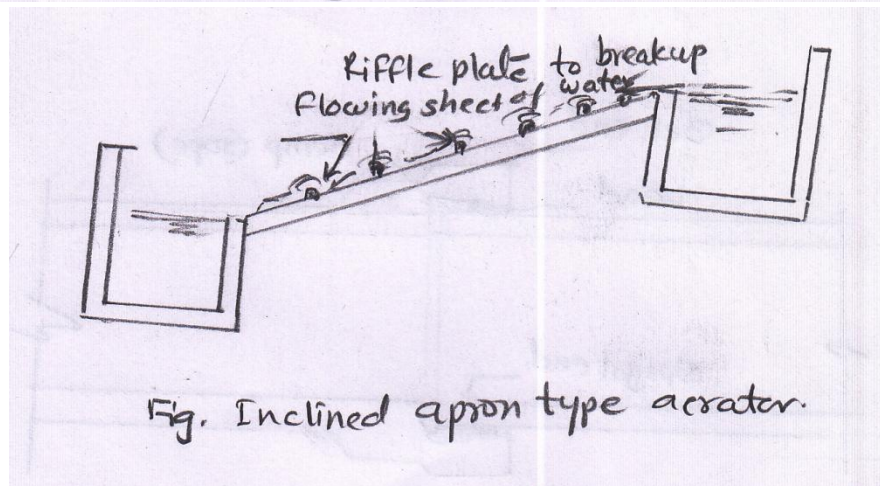 Riffle plate to breakup
flowing sheet of water
Fig. Inclined apron type aerator.